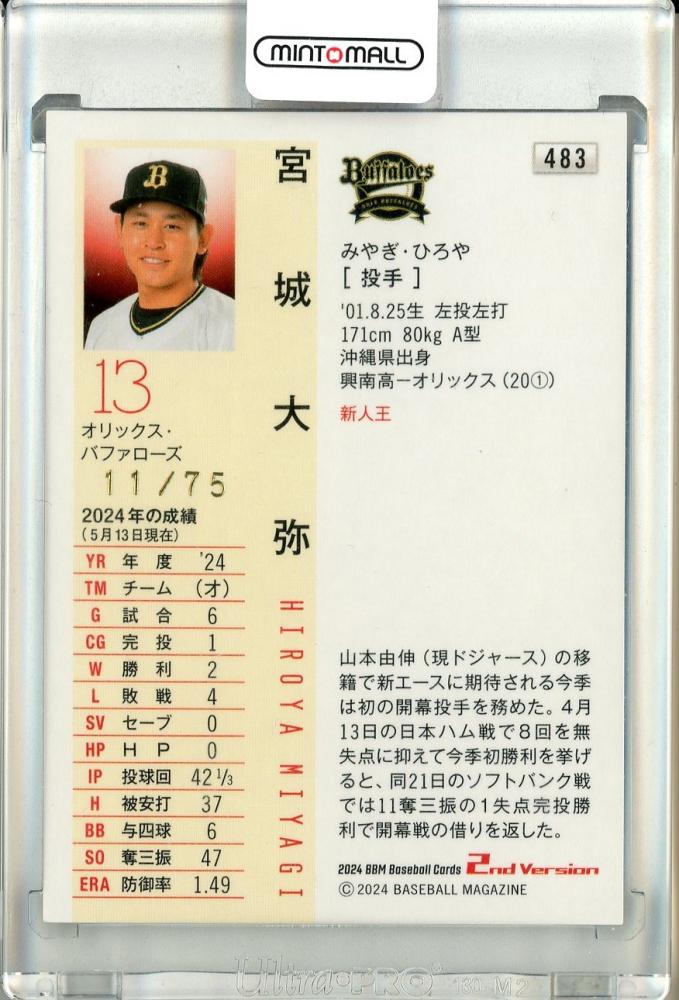 MINTOMALL
483
Buffaloes
ORIX BUFFALOES
B
宮城大弥
HIROYA MIYAGI
みやぎ・ひろや
[ 投手 ]
'01.8.25生 左投左打
171cm 80kg A型
沖縄県出身
興南高ーオリックス(20①)
新人王
13
オリックス・
バファローズ
11/75
2024年の成績
(5月13日現在)
YR 年度 '24
TM チーム (オ)
G 試合 6
CG 完投 1
W 勝利 2
L 敗戦 4
SV セーブ 0
HP H P 0
IP 投球回 42 1/3
H 被安打 37
BB 与四球 6
SO 奪三振 47
ERA 防御率 1.49
山本由伸(現ドジャース)の移
籍で新エースに期待される今季
は初の開幕投手を務めた。4月
13日の日本ハム戦で8回を無
失点に抑えて今季初勝利を挙げ
ると、同21日のソフトバンク戦
では11奪三振の1失点完投勝
利で開幕戦の借りを返した。
2024 BBM Baseball Cards 2nd Version
©2024 BASEBALL MAGAZINE
Ultra•PRO 130 M2